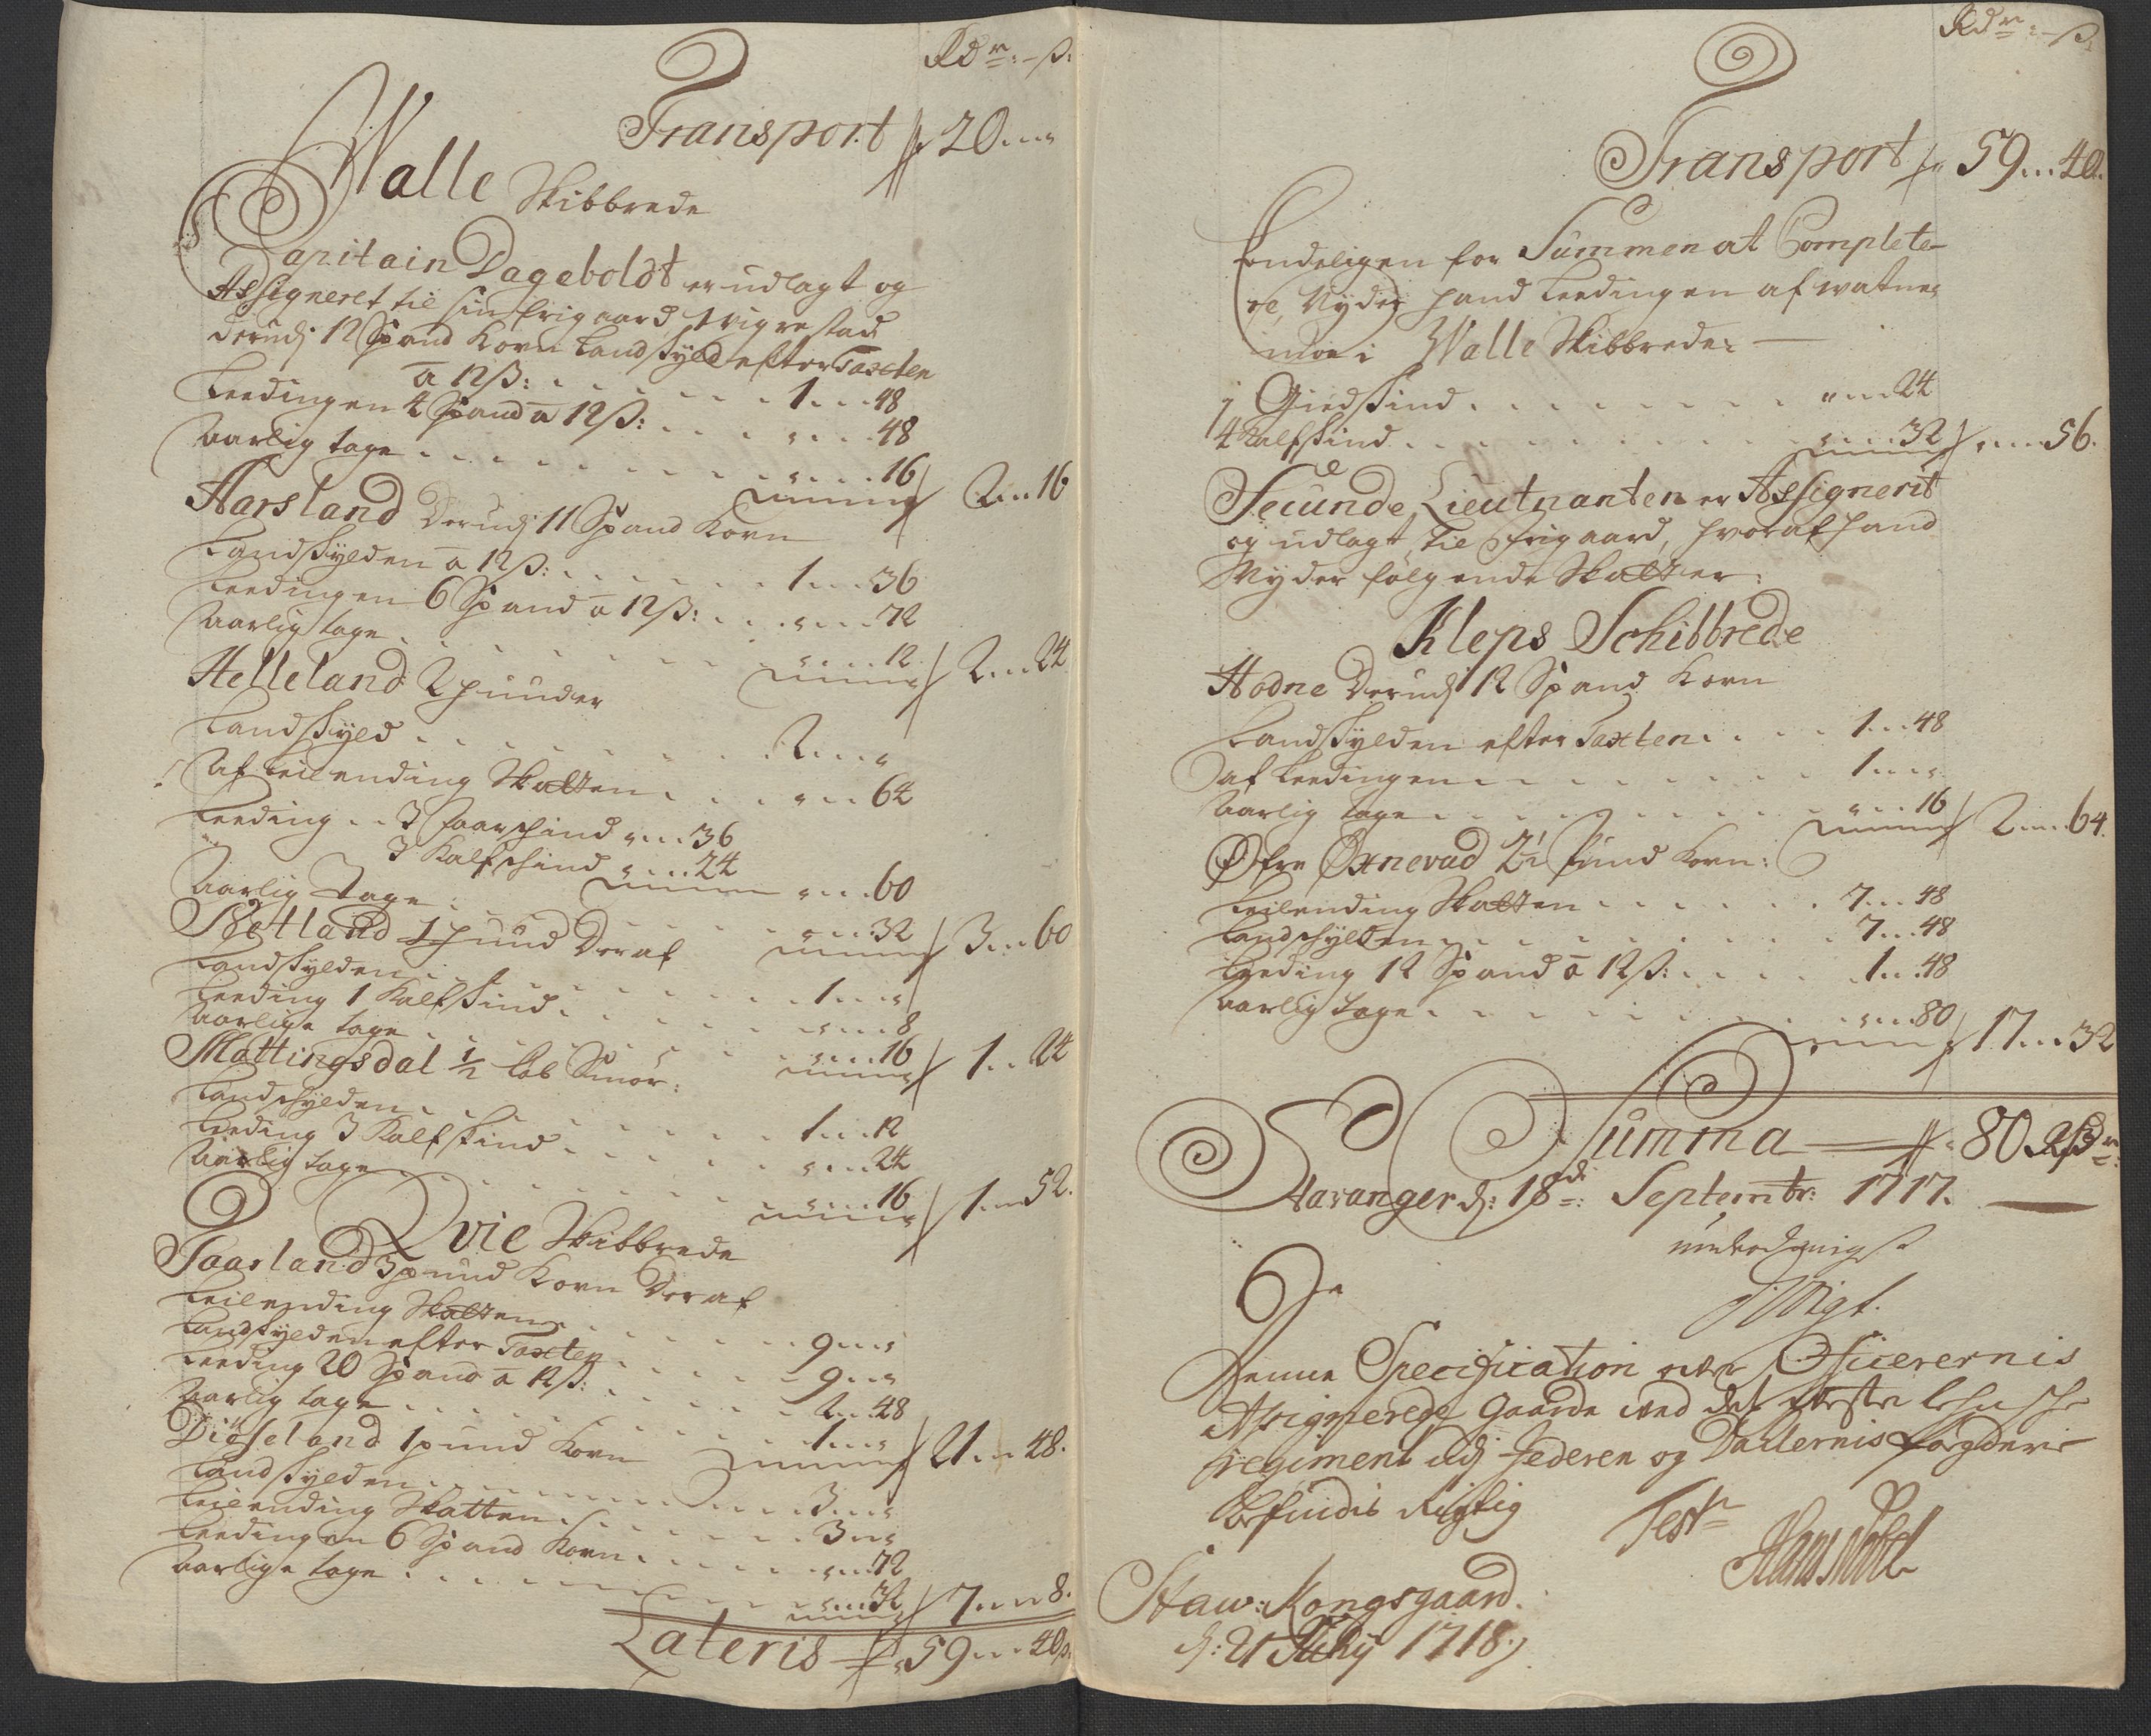 Rdr: - ß:
Transport 20 „
Walle Skibbrede
Capitain Dageboldt er udlagt og
Assigneret til sin frigaard Wigrestad
derudj 12 Spand Korn Landskyld efter Taxten
à 12 ß: . . . . . 1 . . 48
Leedingen 4 Spand à 12 ß: . . . „ . . 48
Aarlig tage . . . . . „ . . 16 2 . . 16
Harsland Derudj 11 Spand Korn
Landskylden à 12 ß: . . . . . 1 . . 36
Leedingen 6 Spand à 12 ß: . . „ . . 72
Aarlig tage . . . . . „ . . 12 2 . . 24
Helleland 2 punder
Landskyld . . . . . 2 . . „
Af Leilending Skatten . . . „ . . 64
Leeding . . 3 faarschind „ . . 36
3 Kalfschind „ . . 24 „ . . 60
Aarlig Tage . . . . . „ . . 32 3 . . 60
Netland 1 pund Deraf
Landskylden . . . . . 1 . . „
Leeding 1 Kalfskind . . . . „ . . 8
Aarlige tage . . . . . „ . . 16 1 . . 24
Mattingsdal 1/2 lob Smør:
Landschylden . . . . . 1 . . 12
Leeding 3 Kalfskind . . . . „ . . 24
Aarlig tage . . . . . „ . . 16 1 . . 52.
Qvie Skibbrede
Taarland 3 pund Korn Deraf
Leilending Skatten . . . . 9 . . „
Landskylden efter Taxten . . . 9 . . „
Leeding 20 Spand à 12 ß: . . . 2 . . 48
Aarlig tage . . . . . 1 . . „ 21 . . 48.
Diøseland 1 pund Korn
Landskylden . . . . . 3 . . „
Leilending Skatten . . . . 3 . . „
Leedingen 6 Spand Korn . . . „ . . 72
Aarlige tage . . . . . „ . . 32 7 . . 8.
Lateris 59 . . 40 ß
Rdr: - ß:
Transport 59 . . 40.
Endeligen for Summen at Complete-
re, Nyder hand Leedingen af watne
moe i Walle Skibbrede:
1 Giedskind . . . . . „ . . 24
4 Kalfskind . . . . . „ . . 32 „ . . 56.
Secunde Lieutnanten er Assignerit
og udlagt til frigaard, hvoraf hand
Nyder følgende Skatter:
Kleps Schibbrede
Hodne Derudj 12 Spand Korn
Landskylden efter Taxten . . . 1 . . 48
af Leedingen . . . . . 1 . . „
Aarlig tage . . . . . „ . . 16 2 . . 64.
Øfre Øxnevad 2 1/2 pund Korn:
Leilending Skatten . . . . . 7 . . 48
Landschylden . . . . . 7 . . 48
Leeding 12 Spand à 12 ß: . . . 1 . . 48
Aarlig tage . . . . . „ . . 80 17 . . 32
Summa 80 Rdr:
Stavanger d: 18de: Septembr: 1717.
underdanigst
Vigt.
Denne Specification over Officerernis
Assignerede Gaarde ved det
regiment udj Jederen og Dalernis fogderie
befindis Rigtig Test
Hans Nobel
Staw: Kongsgaard.
d: 21 July 1718